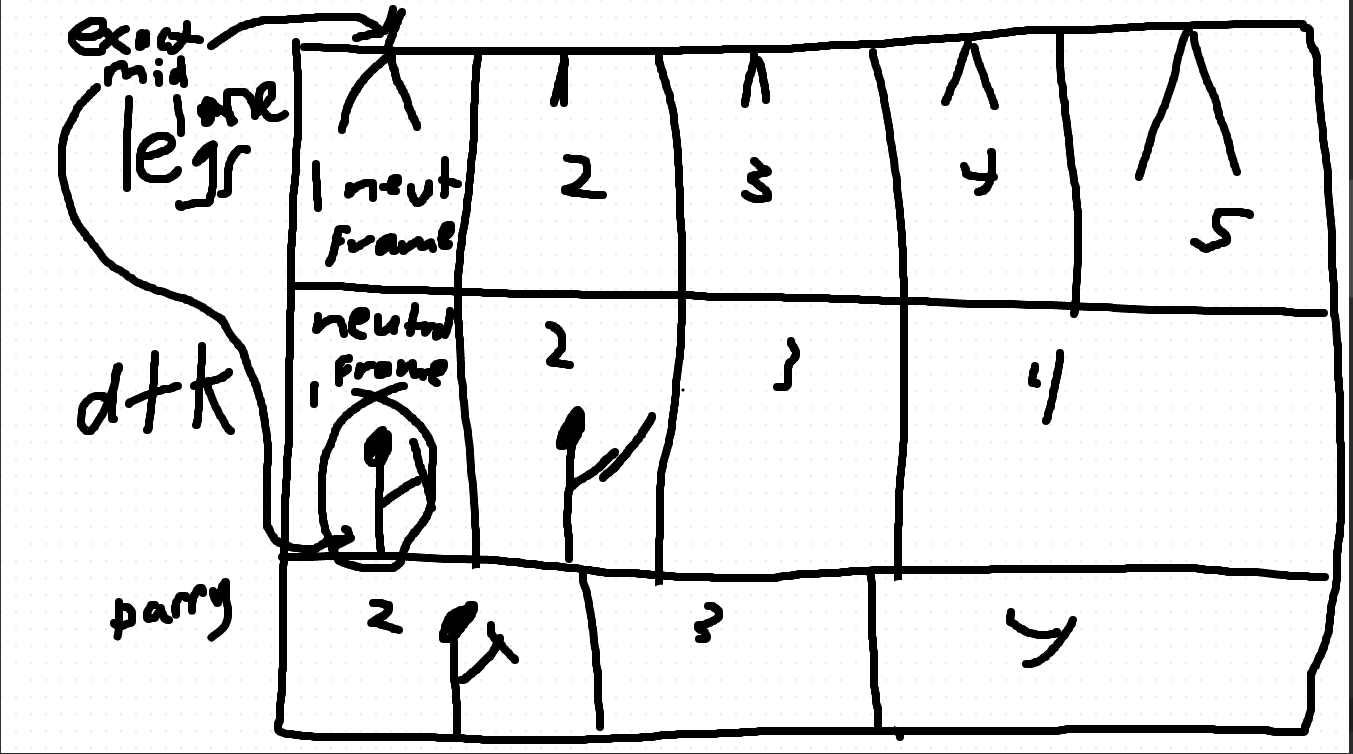 exact
mid
lane
legs
1 neut
frame
2
3
4
5
dtk
neutral
1 frame
2
3
4
parry
2
3
4